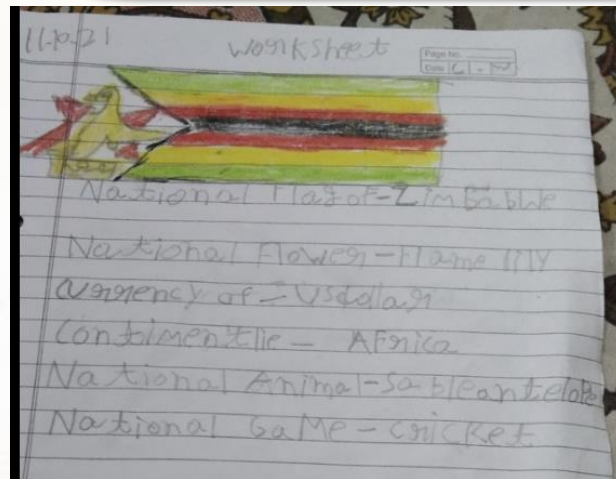 11.10.21
Worksheet
Page No.
Date
National Flag of-Zimbabwe
National Flower-Flame lily
currency of = USdollar
Contoimentlie - AFrica
National Animal-Sableantelope
National GaMe-cricket